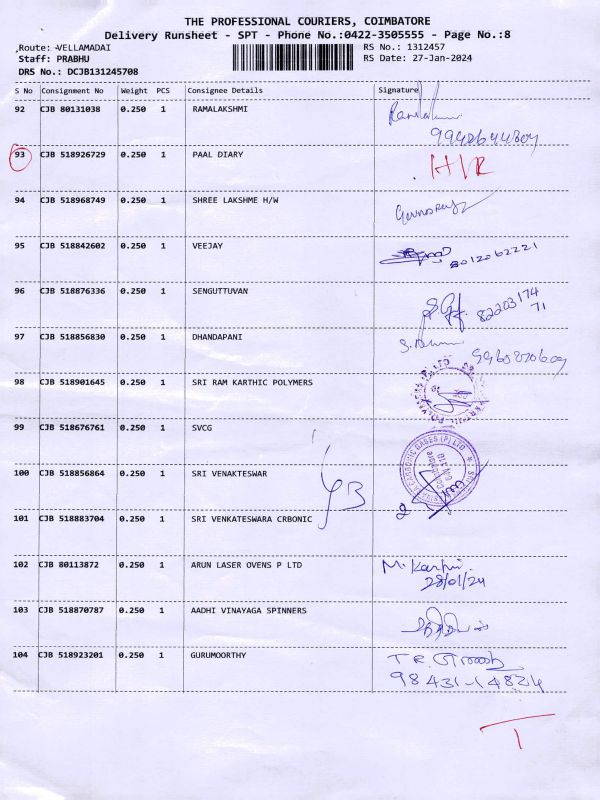 THE PROFESSIONAL COURIERS, COIMBATORE
Delivery Runsheet - SPT - Phone No.:0422-3505555 - Page No.:8
Route: -VELLAMADAI RS No.: 1312457
Staff: PRABHU RS Date: 27-Jan-2024
DRS No.: DCJB131245708
S No Consignment No Weight PCS Consignee Details Signature
92 CJB 80131038 0.250 1 RAMALAKSHMI
93 CJB 518926729 0.250 1 PAAL DIARY
94 CJB 518968749 0.250 1 SHREE LAKSHME H/W
95 CJB 518842602 0.250 1 VEEJAY
8012062221
96 CJB 518876336 0.250 1 SENGUTTUVAN
82203174
71
97 CJB 518856830 0.250 1 DHANDAPANI
98 CJB 518901645 0.250 1 SRI RAM KARTHIC POLYMERS
99 CJB 518676761 0.250 1 SVCG
100 CJB 518856864 0.250 1 SRI VENAKTESWAR
101 CJB 518883704 0.250 1 SRI VENKATESWARA CRBONIC
102 CJB 80113872 0.250 1 ARUN LASER OVENS P LTD M. Karthi
28/01/24
103 CJB 518870787 0.250 1 AADHI VINAYAGA SPINNERS
104 CJB 518923201 0.250 1 GURUMOORTHY
98431-14824